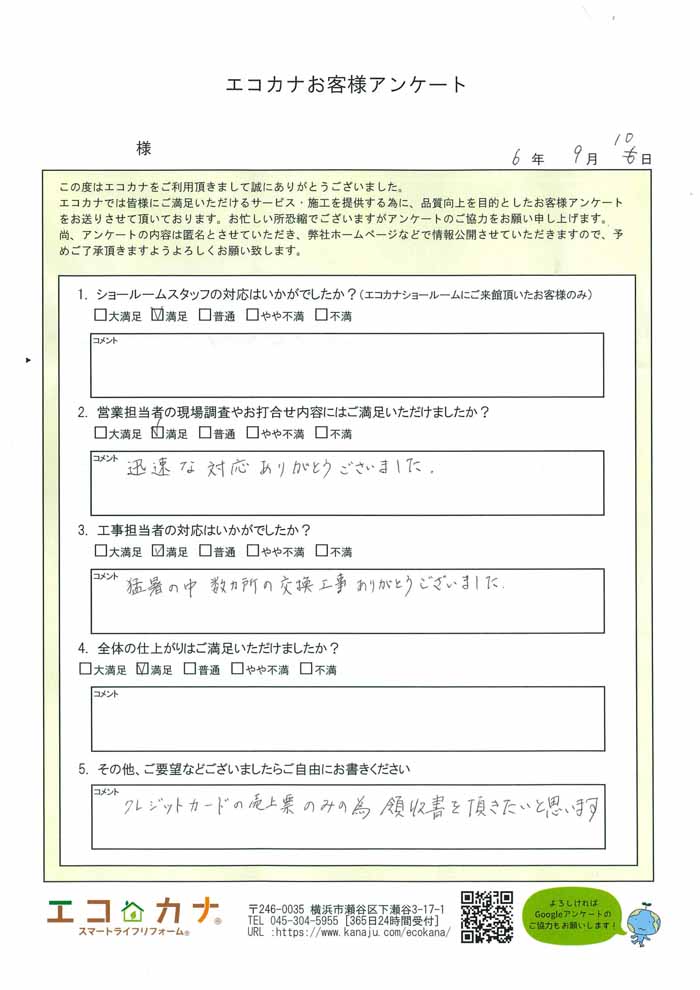 エコカナお客様アンケート
様
6年 9月 10日
この度はエコカナをご利用頂きまして誠にありがとうございました。
エコカナでは皆様にご満足いただけるサービス・施工を提供する為に、品質向上を目的としたお客様アンケート
をお送りさせて頂いております。お忙しい所恐縮でございますがアンケートのご協力をお願い申し上げます。
尚、アンケートの内容は匿名とさせていただき、弊社ホームページなどで情報公開させていただきますので、予
めご了承頂きますようよろしくお願い致します。
1. ショールームスタッフの対応はいかがでしたか？(エコカナショールームにご来館頂いたお客様のみ)
□大満足 ☑満足 □普通 □やや不満 □不満
コメント
2. 営業担当者の現場調査やお打合せ内容にはご満足いただけましたか？
□大満足 ☑満足 □普通 □やや不満 □不満
コメント
迅速な対応ありがとうございました.
3. 工事担当者の対応はいかがでしたか？
□大満足 ☑満足 □普通 □やや不満 □不満
コメント
猛暑の中 数カ所の交換工事ありがとうございました.
4. 全体の仕上がりはご満足いただけましたか？
□大満足 ☑満足 □普通 □やや不満 □不満
コメント
5. その他、ご要望などございましたらご自由にお書きください
コメント
クレジットカードの売上票のみの為 領収書を頂きたいと思います
エコカナ®
スマートライフリフォーム®
〒246-0035 横浜市瀬谷区下瀬谷3-17-1
TEL 045-304-5955 [365日24時間受付]
URL :https://www.kanaju.com/ecokana/
よろしければ
Googleアンケートの
ご協力もお願いします!